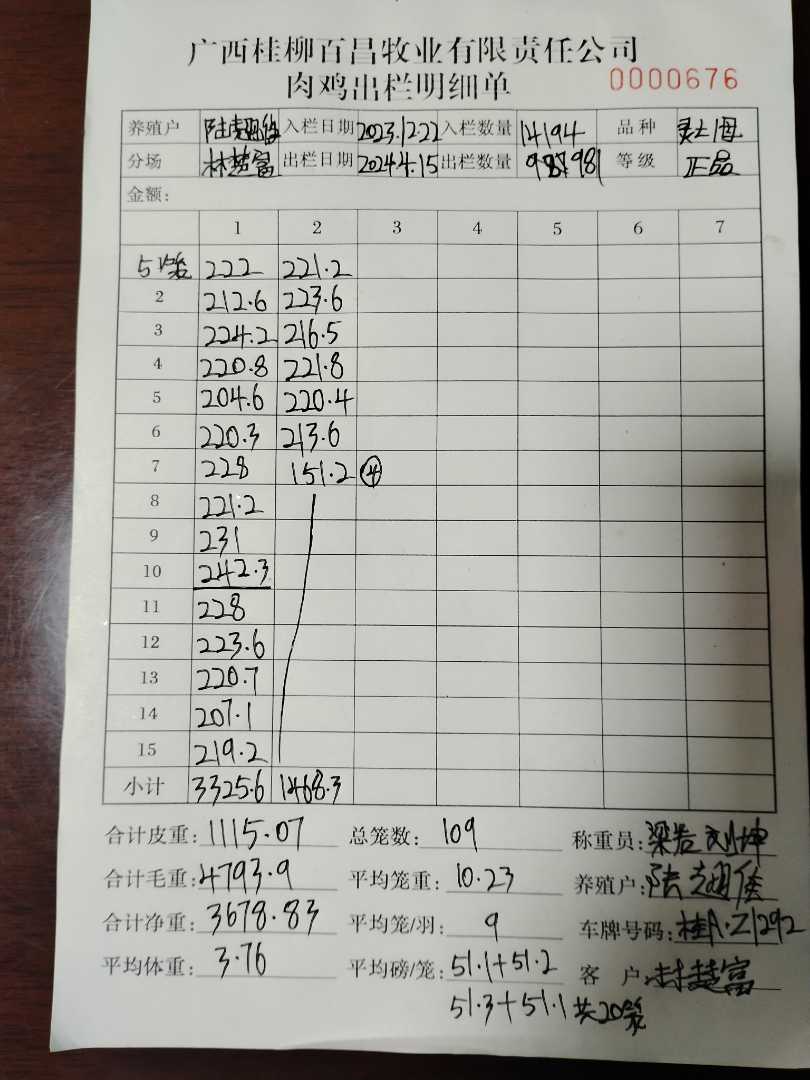 广西桂柳百昌牧业有限责任公司
肉鸡出栏明细单 0000676
养殖户 陆 入栏日期 2023.12.22 入栏数量 14194 品种
分场 林楚富 出栏日期 2024.4.15 出栏数量 981 等级 正品
金额:
1 2 3 4 5 6 7
5笼 222 221.2
2 212.6 223.6
3 224.2 216.5
4 220.8 221.8
5 204.6 220.4
6 220.3 213.6
7 228 151.2 ④
8 221.2
9 231
10 242.3
11 228
12 223.6
13 220.7
14 207.1
15 219.2
小计 3325.6 1468.3
合计皮重: 1115.07 总笼数: 109 称重员:
合计毛重: 4793.9 平均笼重: 10.23 养殖户: 陆
合计净重: 3678.83 平均笼/羽: 9 车牌号码: 桂A·Z1292
平均体重: 3.76 平均磅/笼: 51.1+51.2 客户: 林楚富
51.3+51.1 共20笼